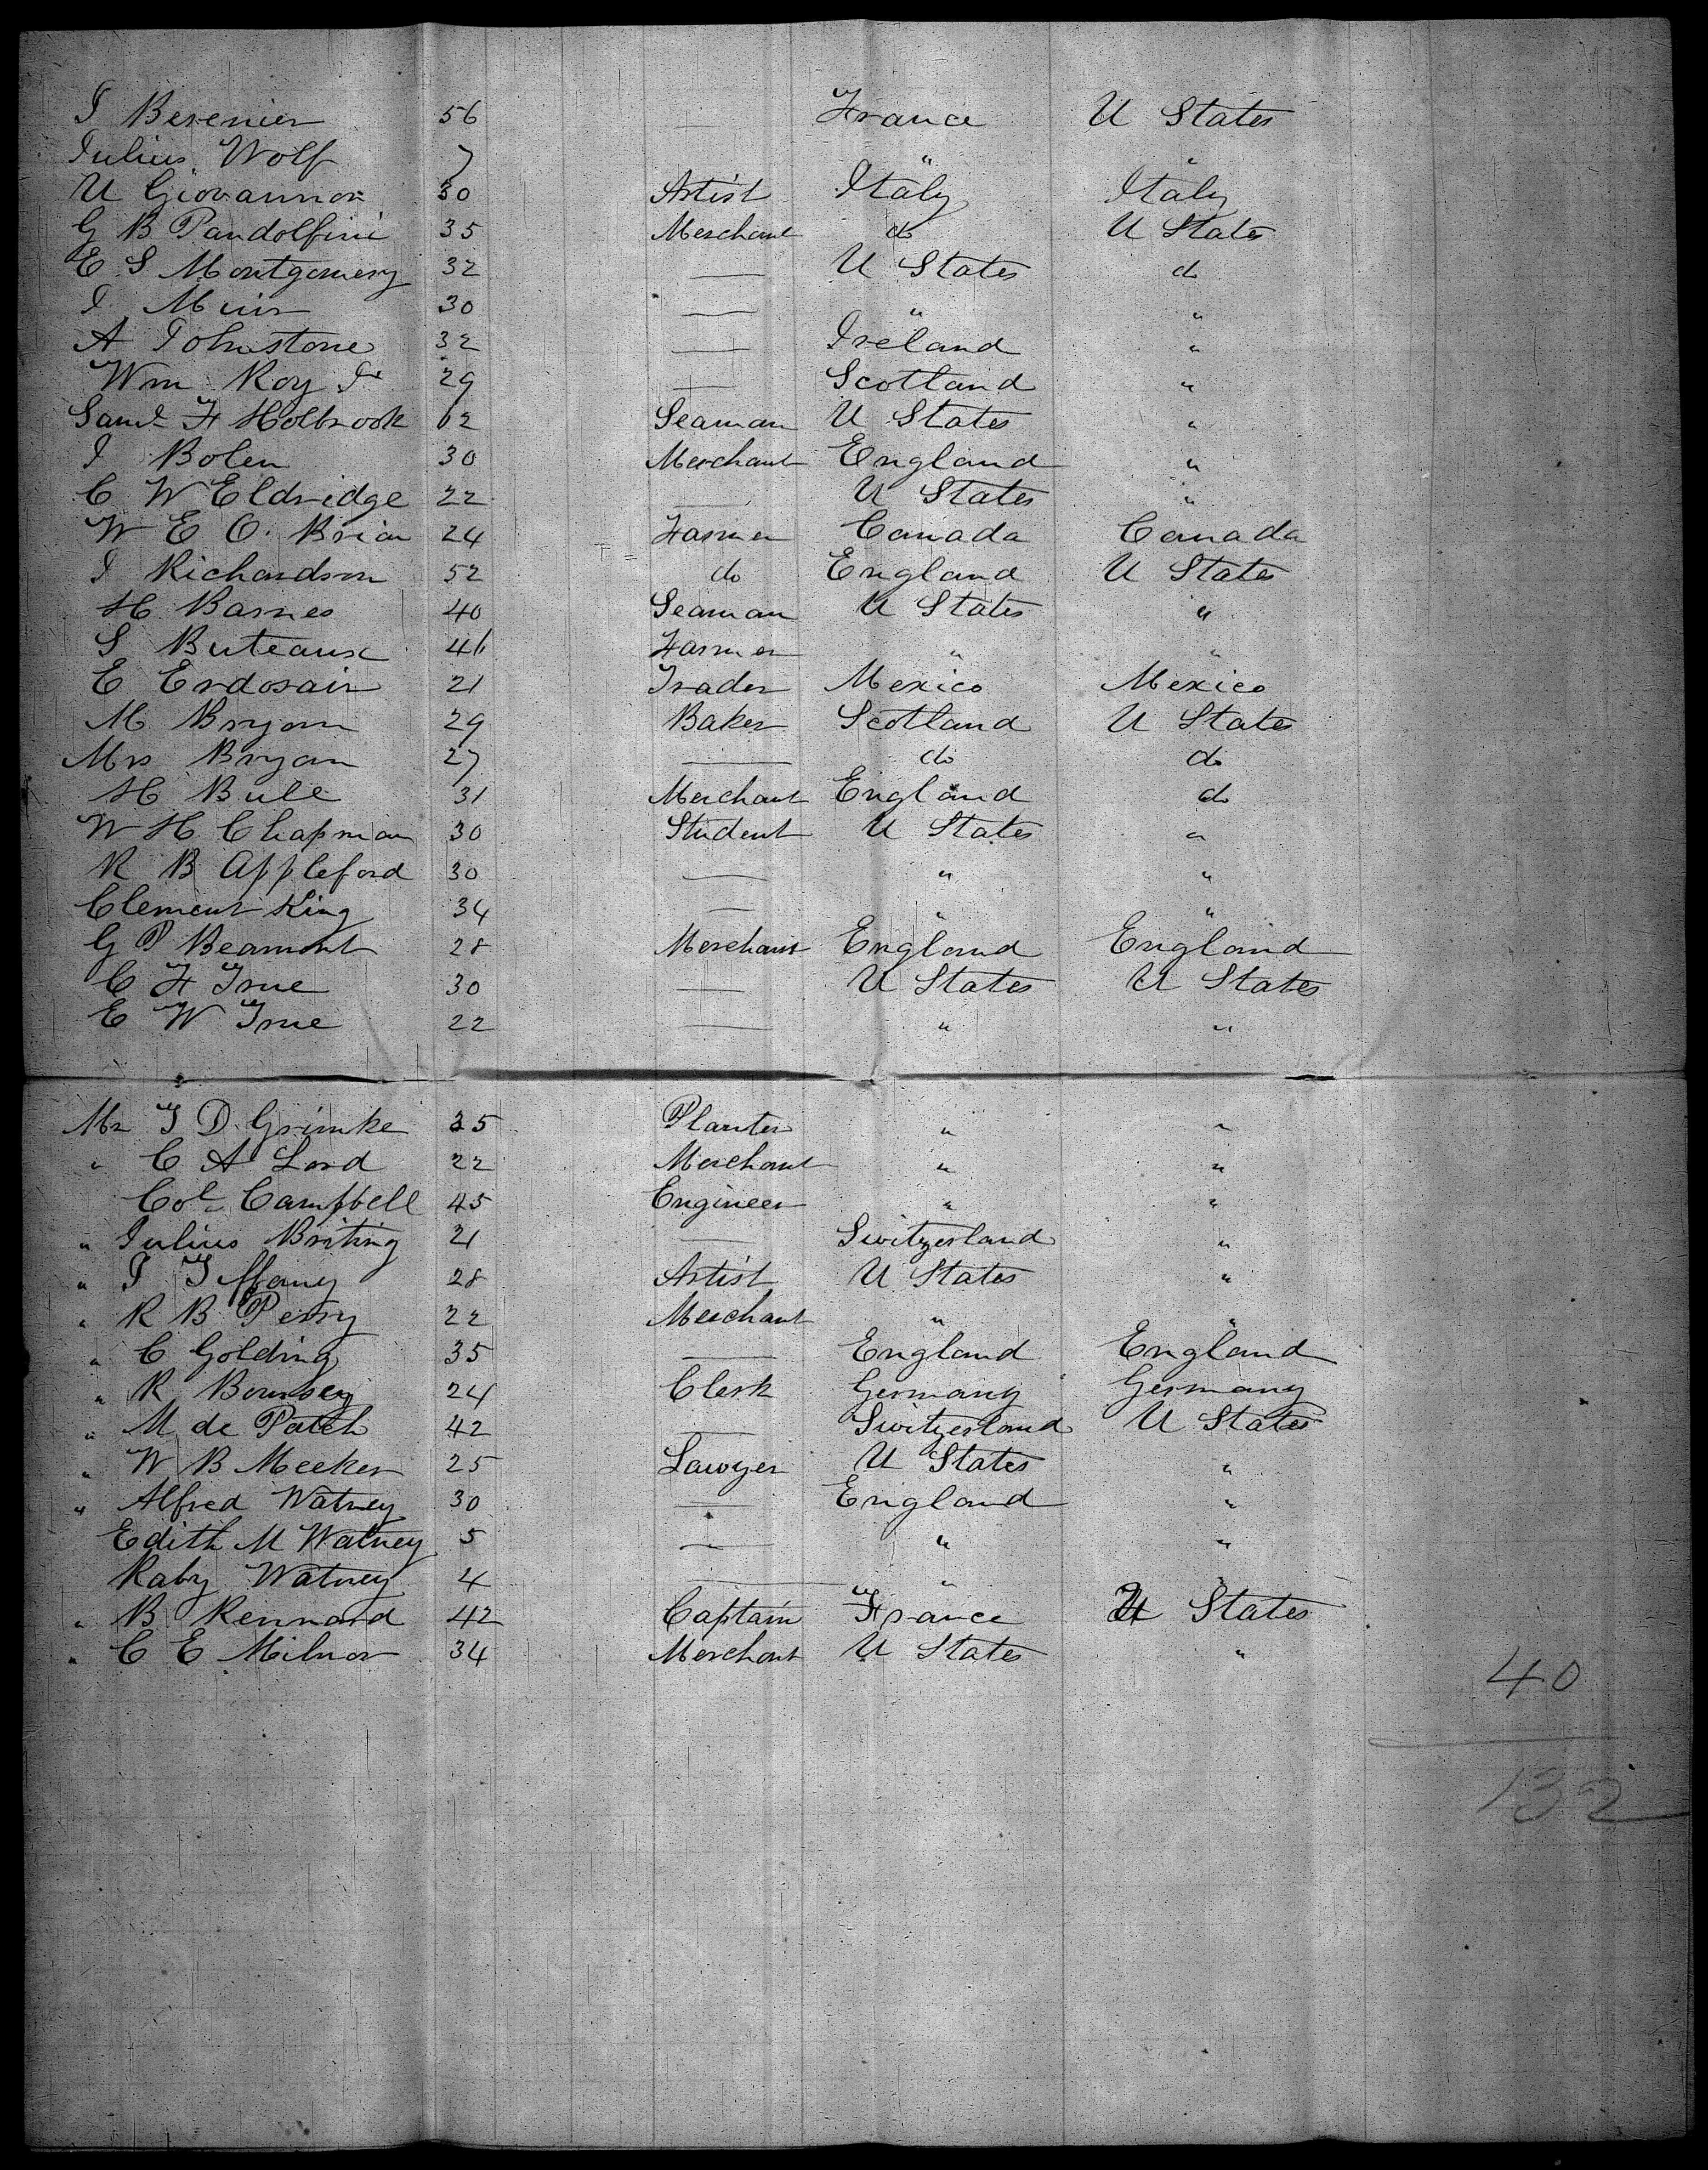 J Berenier 56 — France U States
Julius Wolf 7 " "
U Giovannon 30 Artist Italy Italy
G B Pandolfini 35 Merchant do U States
E S Montgomery 32 — U States do
J Muir 30 — " "
A Johnstone 32 — Ireland "
Wm Roy Jr 29 — Scotland "
Saml F Holbrook 62 Seaman U States "
J Bolen 30 Merchant England "
C W Eldridge 22 — U States "
W E O. Brian 24 Farmer Canada Canada
J Richardson 52 do England U States
H Barnes 40 Seaman U States "
S Buteaux 46 Farmer " "
E Erdosain 21 Trader Mexico Mexico
M Bryan 29 Baker Scotland U States
Mrs Bryan 27 — do do
H Bull 31 Merchant England do
W H Chapman 30 Student U States "
R B Appleford 30 — " "
Clement King 34 — " "
G P Beamont 28 Merchant England England
C F True 30 — U States U States
E W True 22 — " "
Mr T D Grimke 35 Planter " "
" C A Lord 22 Merchant " "
Col Campbell 45 Engineer " "
" Julius Briting 21 — Switzerland "
" J Tiffany 28 Artist U States "
" R B Perry 22 Merchant " "
" C Golding 35 — England England
" R 24 Clerk Germany Germany
" M de Patch 42 — Switzerland U States
" W B Meeker 25 Lawyer U States "
" Alfred Watney 30 — England "
Edith M Watney 5 — " "
Raby Watney 4 — " "
" B Rennard 42 Captain France U States
" C E Milnor 34 Merchant U States "
40
132